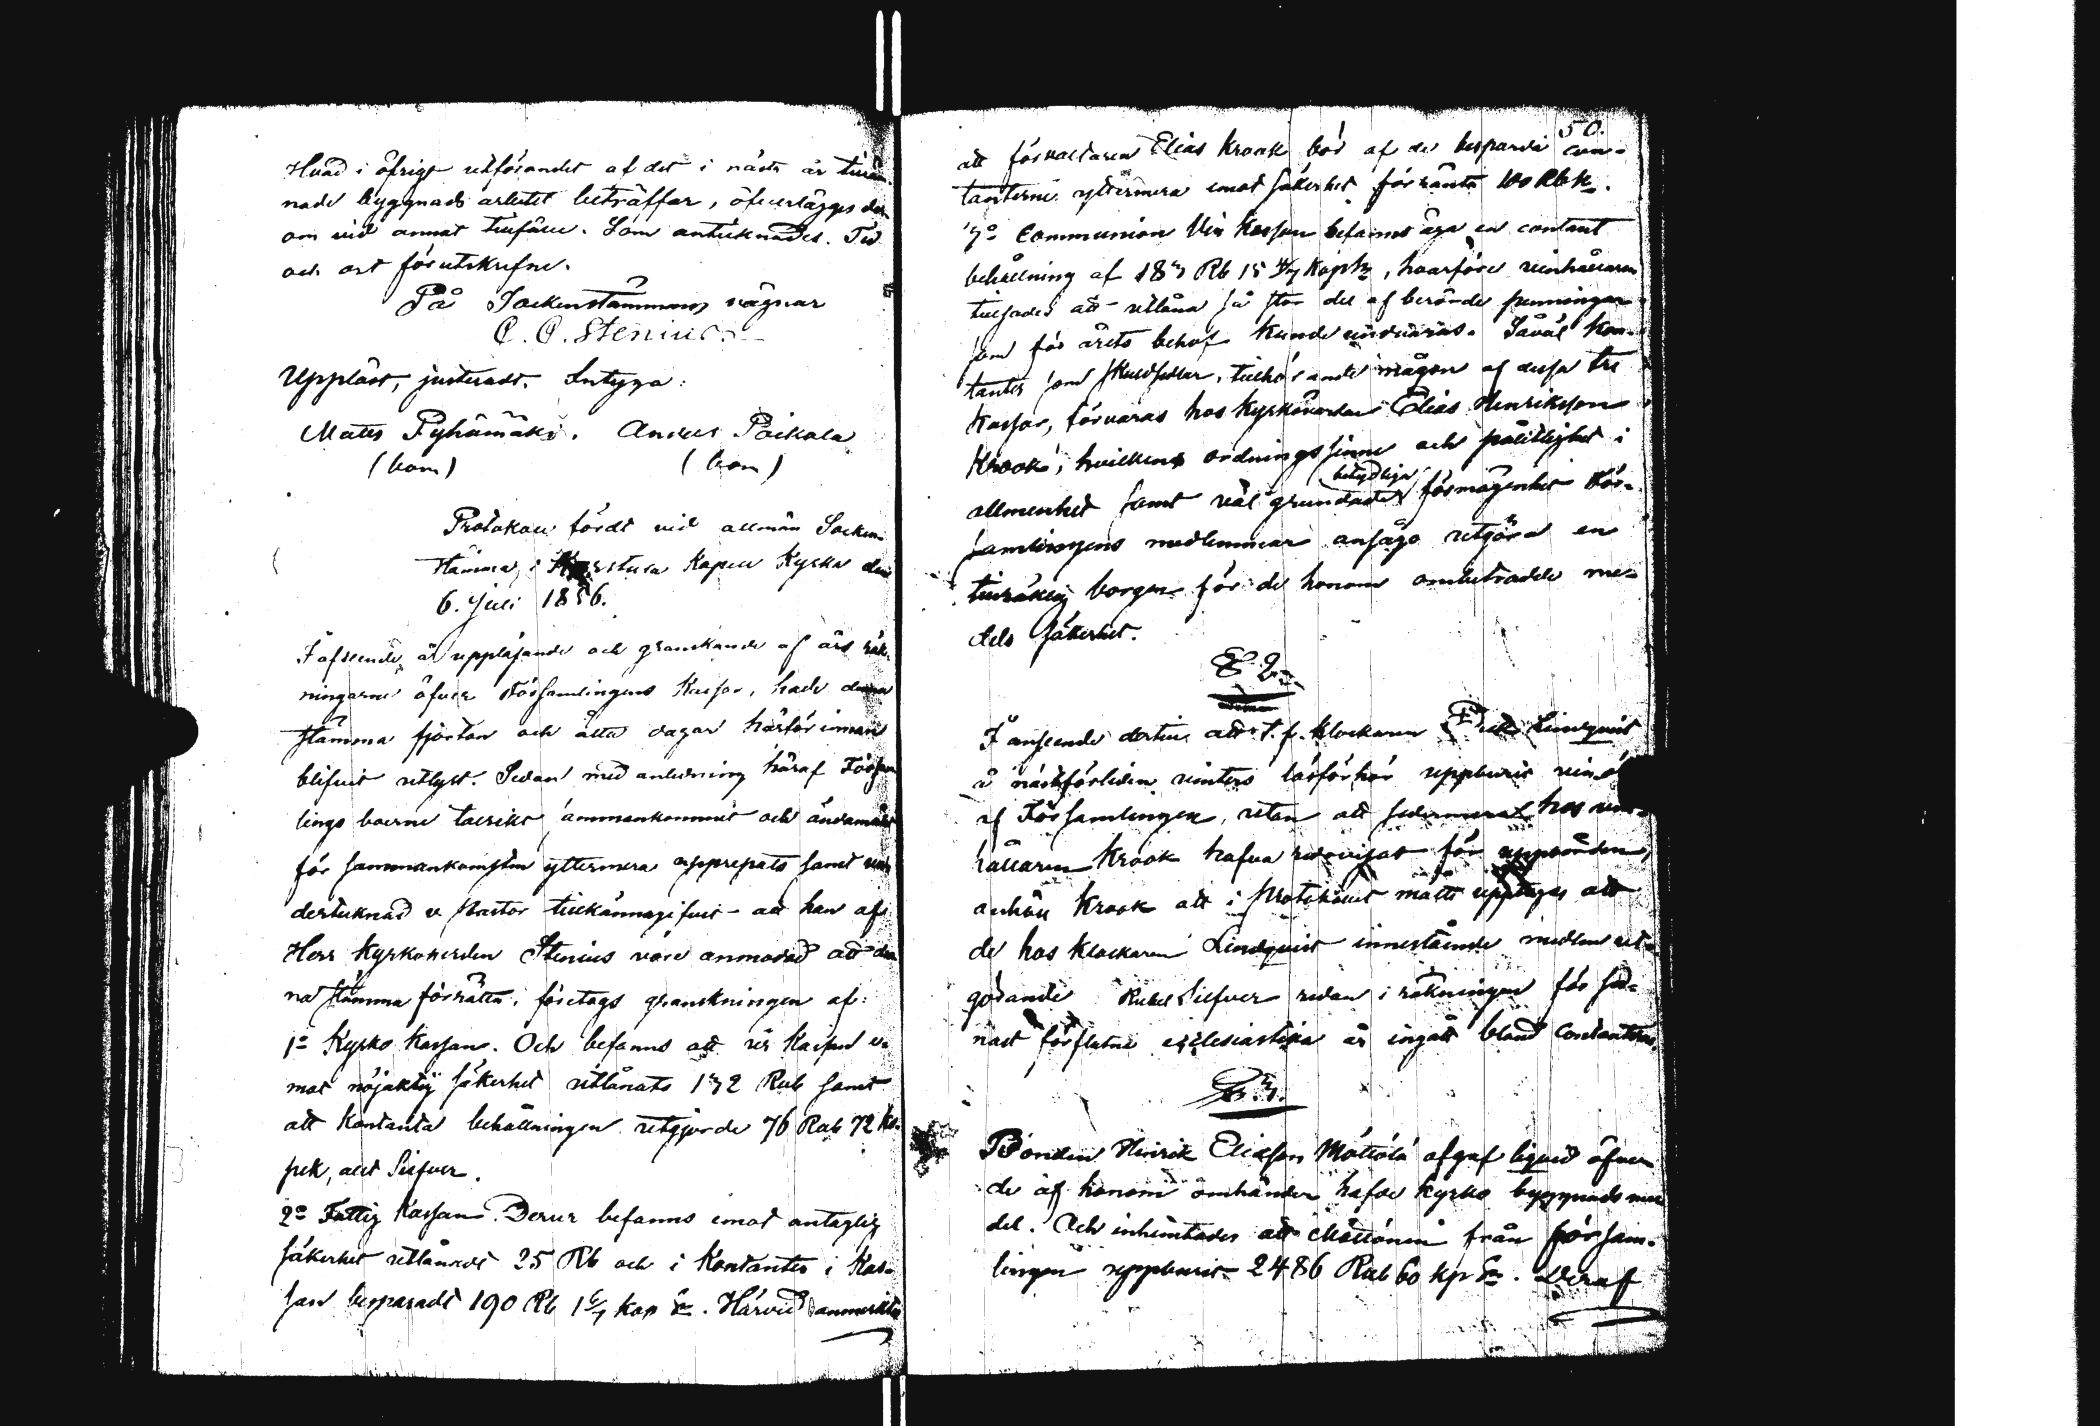 Hvad i öfrigt utförandet af det i nästa år tillän-
nade byggnads arbetet beträffar, öfverlägges der-
om vid annat tillfälle. Som antecknades. Tid
och ort förutskrefne.
På Sockenstämmans vägnar
C. C. Stenius.
Uppläst, justeradt. Intyga:
Matts Pyhämäki. Anders Poikola
(bom) (bom)
Protokoll fördt vid allmän Socken-
stämma i Kapell Kyrka den
6. Juli 1856.
I afseende å uppläsande och granskande af års räk-
ningarne öfver Församlingens Kassor, hade denna
stämma fjorton och åtta dagar härförinnan
blifvit utlyst. Sedan med anledning häraf Försam-
lings boerne talrikt sammankommit och ändamålet
för sammankomsten yttermera upprepats samt un-
dertecknad v. Pastor tillkännagifvit att han af
Herr Kyrkoherden Stenius vore anmodad att den-
na stämma förrätta, företogs granskningen af:
1o Kyrko Kassan. Och befanns att ur Kassan e-
mot nöjaktig säkerhet utlånats 172 Rub samt
att Kontanta behållningen utgjorde 76 Rub 72 ko-
pek, allt Silfver.
2o Fattig Kassan. Derur befanns emot antaglig
säkerhet utlånadt 25 Rb och i Kontanter i Kas-
san besparadt 190 Rb 1 6/7 kop Sr. Härvid anmärktes
50.
att förvaltaren Elias Krook bör af de besparda con-
tanterne yttermera emot säkerhet förränta 100 Rb
3o Communion Vin Kassan befanns äga en contant
behållning af 183 Rb 15 4/7 Kop Sr, hvarföre vinhållaren
tillsades att utlåna så stor del af berörde penningar
som för årets behof kunde undvaras. Såväl kon-
tanter som skuldsedlar, tillhörande någon af dessa tre
Kassor, förvaras hos Kyrkovärden Elias Henriksson
Krook, hvilkens ordningssinne och pålitlighet i
allmenhet samt väl grundade betydliga förmögenhet För-
samlingens medlemmar ansågo utgöra en
tillräcklig borgen för de honom ombetrodde me-
dels säkerhet.
§ 2.
I anseende dertill att t. f. Klockaren Lindqvist
å nästförliden vinters läsförhör uppburit
af Församlingen, utan att sedermera hos vin-
hållaren Krook hafva redovisat för uppbörden,
anhöll Krook att i Protokollet måtte upptagas att
de hos Klockaren Lindqvist innestående medlen ut-
görande Rubel Silfver redan i räkningen för sed-
nast förflutna ecclesiastika år ingått bland contanterne.
§ 3.
Bonden Henrik Eliasson Möttölä afgaf liquid öfver
de af honom omhänder hafde kyrko byggnads me-
del. Och inhemtades att Möttönen från försam-
lingen uppburit 2486 Rub 60 kp Sr. Deraf